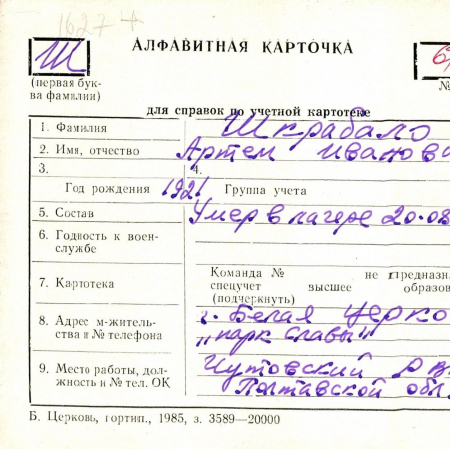 16274
Ш
АЛФАВИТНАЯ КАРТОЧКА
(первая бук-
ва фамилии)
№
для справок по учетной картотеке
1. Фамилия Шкрабало
2. Имя, отчество Артем Иванов
3. 4.
Год рождения 1921 Группа учета
5. Состав Умер в лагере 20.08
6. Годность к воен-
службе
Команда № не предназн
7. Картотека спецучет высшее образов
(подчеркнуть)
8. Адрес м-житель- г. Белая Церко
ства и № телефона „парк славы"
9. Место работы, дол- Чутовский РВ
жность и № тел. ОК Полтавской обл.
Б. Церковь, гортип., 1985, з. 3589—20000